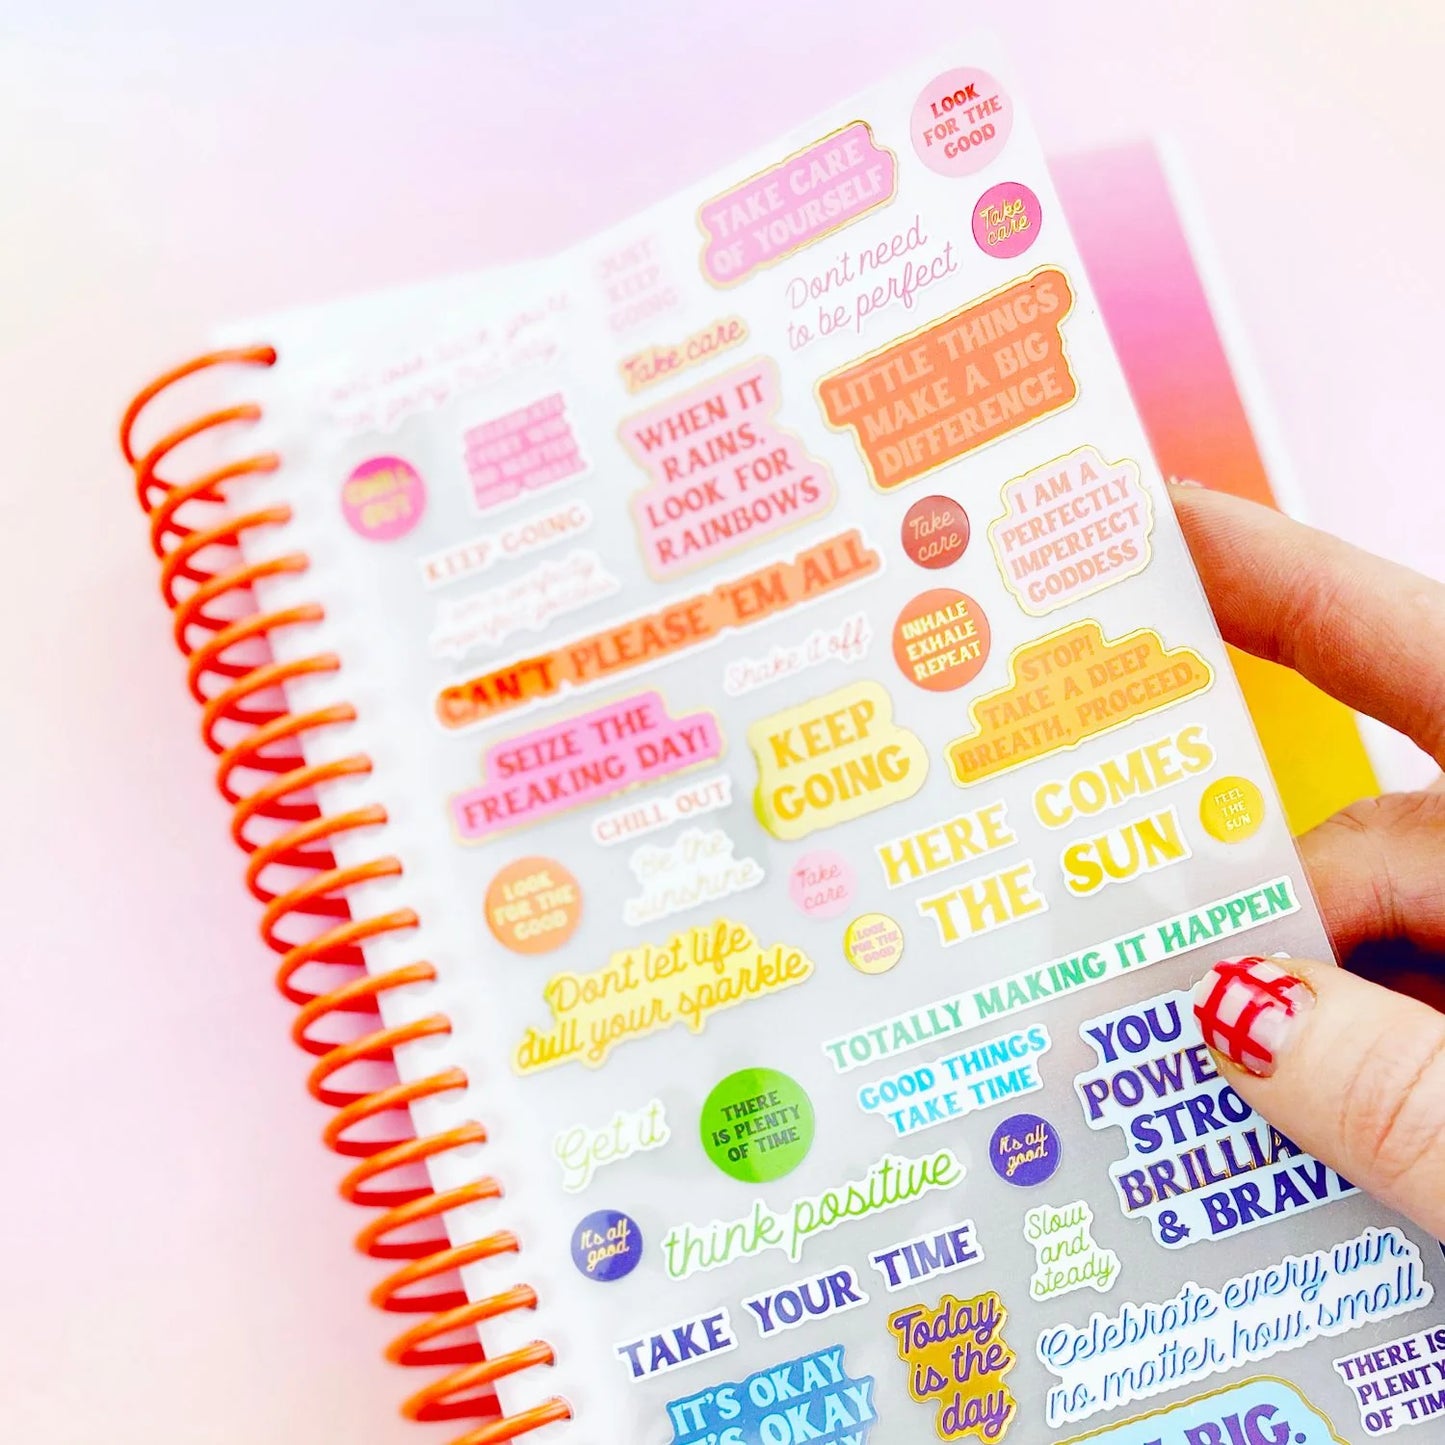 LOOK
FOR THE
GOOD
TAKE CARE
OF YOURSELF
Take
care
JUST
KEEP
GOING
Don't need
to be perfect
Take care
LITTLE THINGS
MAKE A BIG
DIFFERENCE
CELEBRATE
EVERY WIN
NO MATTER
HOW SMALL
WHEN IT
RAINS,
LOOK FOR
RAINBOWS
CHILL
OUT
KEEP GOING
I am a perfectly
imperfect goddess
Take
care
I AM A
PERFECTLY
IMPERFECT
GODDESS
CAN'T PLEASE 'EM ALL
Shake it off
INHALE
EXHALE
REPEAT
STOP!
TAKE A DEEP
BREATH, PROCEED.
SEIZE THE
FREAKING DAY!
KEEP
GOING
CHILL OUT
HERE COMES
THE SUN
FEEL
THE
SUN
LOOK
FOR THE
GOOD
Be the
sunshine
Take
care
LOOK
FOR THE
GOOD
Dont let life
dull your sparkle
TOTALLY MAKING IT HAPPEN
GOOD THINGS
TAKE TIME
YOU
POWE
STRO
BRILLIA
& BRAVE
Get it
THERE
IS PLENTY
OF TIME
It's all
good
think positive
It's all
good
Slow
and
steady
TAKE YOUR TIME
Today
is the
day
Celebrate every win,
no matter how small
IT'S OKAY
IT'S OKAY
THERE IS
PLENTY
OF TIM
BIG.